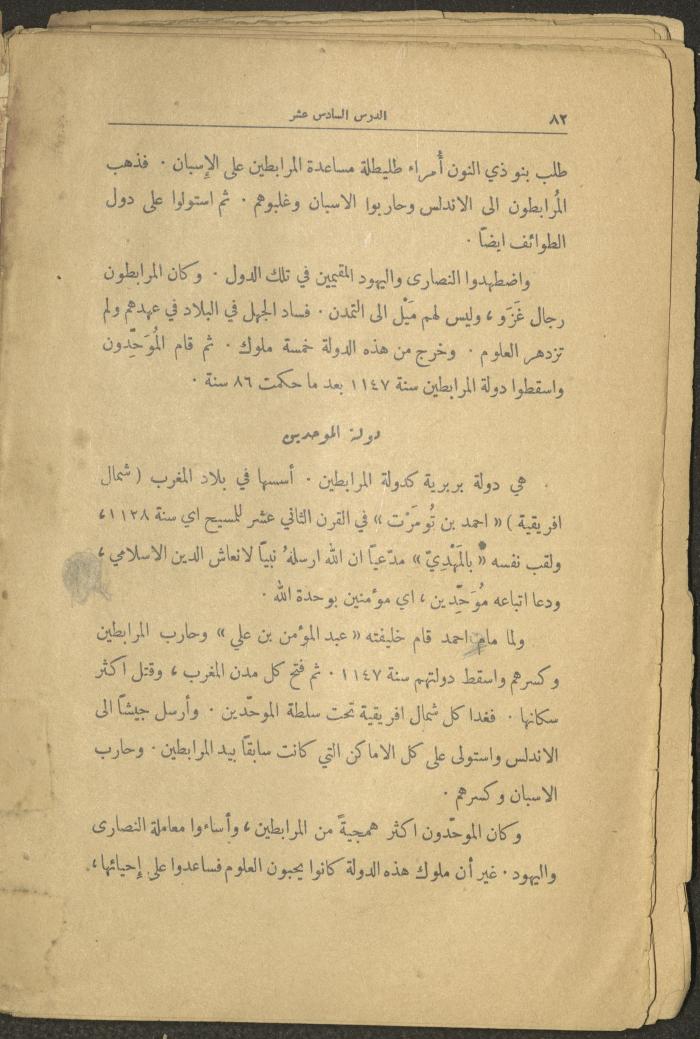 ٨٢
الدرس السادس عشر
طلب بنو ذي النون أُمراء طليطلة مساعدة المرابطين على الإسبان . فذهب
المُرابطون الى الاندلس وحاربوا الاسبان وغلبوهم . ثم استولوا على دول
الطوائف ايضاً .
واضطهدوا النصارى واليهود المقيمين في تلك الدول . وكان المرابطون
رجال غَزَو ، وليس لهم مَيْل الى التمدن . فساد الجهل في البلاد في عهدهم ولم
تزدهر العلوم . وخرج من هذه الدولة خمسة ملوك . ثم قام المُوَحِّدون
واسقطوا دولة المرابطين سنة ١١٤٧ بعد ما حكمت ٨٦ سنة .
دولة الموحدين
هي دولة بربرية كدولة المرابطين . أسسها في بلاد المغرب ( شمال
افريقية ) « احمد بن تُومَرْت » في القرن الثاني عشر للمسيح اي سنة ١١٢٨ ،
ولقب نفسه « بالمَهْدِيّ » مدّعياً ان الله ارسلهُ نبيّاً لانعاش الدين الاسلامي ،
ودعا اتباعه مُوَحِّدين ، اي مؤمنين بوحدة الله .
ولما مات احمد قام خليفته « عبد المؤمن بن علي » وحارب المرابطين
وكسرهم واسقط دولتهم سنة ١١٤٧ . ثم فتح كل مدن المغرب ، وقتل اكثر
سكانها . فغدا كل شمال افريقية تحت سلطة الموحّدين . وأرسل جيشاً الى
الاندلس واستولى على كل الاماكن التي كانت سابقاً بيد المرابطين . وحارب
الاسبان وكسرهم .
وكان الموحّدون اكثر همجيةً من المرابطين ، وأساءوا معاملة النصارى
واليهود . غير أن ملوك هذه الدولة كانوا يحبون العلوم فساعدوا على إحيائها ،